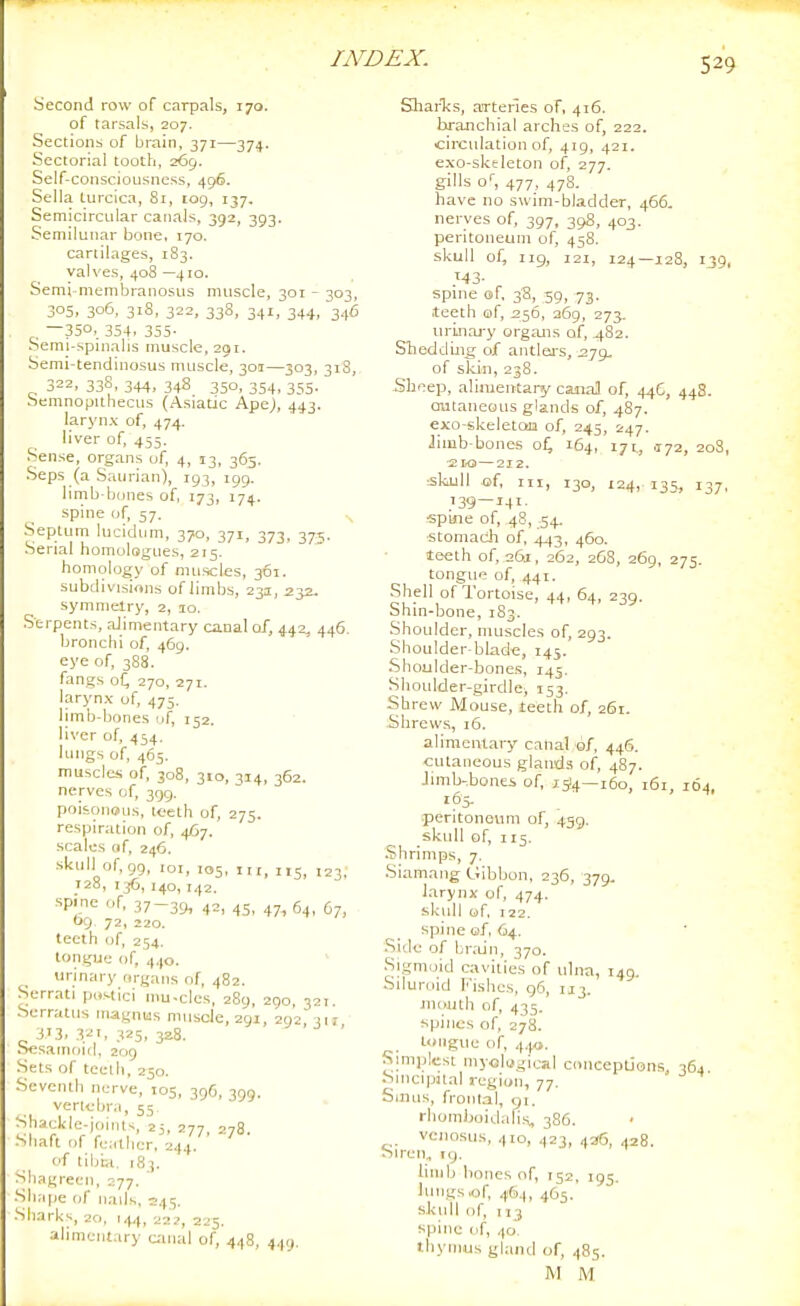 INDEX.
529
Second row of carpals, 170.
of tarsals, 207.
Sections of brain, 371—374.
Sectorial tooth, 269.
Self-consciousness, 496.
Sella turcica, 81, 109, 137.
Semicircular canals, 392, 393.
Semilunar bone, 170.
cartilages, 183.
valves, 408—410.
Semi-membranosus muscle, 301-303,
305, 306, 318, 322, 338, 341, 344, 346
—350, 354, 355.
Semi-spinalis muscle, 291.
Semi-tendinosus muscle, 301—303, 318,
322, 338, 344, 348 350, 354, 355.
Semnopithecus (Asiatic Ape), 443.
larynx of, 474.
liver of, 455.
Sense, organs of, 4, 13, 365.
Seps (a Saurian), 193, 199.
limb-bones of, 173, 174.
spine of, 57.
Septum lucidum, 370, 371, 373, 375.
Serial homologues, 215.
homology of muscles, 361.
subdivisions of limbs, 231, 232.
symmetry, 2, 10.
Serpents, alimentary canal of, 442, 446.
bronchi of, 469.
eye of, 388.
fangs of, 270, 271.
larynx of, 475.
limb-bones of, 152.
liver of, 454.
lungs of, 465.
muscles of, 308, 310, 314, 362.
nerves of, 399.
poisonous, teeth of, 275.
respiration of, 467.
scales of, 246.
skull of, 99, 101, 105, 111, 115, 123,
128, 136, 140, 142.
spine of, 37—39, 42, 45, 47, 64, 67,
69 72, 220.
teeth of, 254.
tongue of, 440.
urinary organs of, 482.
Serrati postici muscles, 289, 290, 321.
Serratus magnus muscle, 291, 292, 311,
313, 321, 325, 328.
Sesamoid, 209
Sets of teeth, 250.
Seventh nerve, 105, 396, 399.
vertebra, 55
Shackle-joints, 25, 277, 278.
Shaft of feather, 244.
of tibia, 183.
Shagreen, 277.
Shape of nails, 245.
Sharks, 20, 144, 222, 225.
alimentary canal of, 448, 449.
Sharks, arteries of, 416.
branchial arches of, 222.
circulation of, 419, 421.
exo-skeleton of, 277.
gills of, 477, 478.
have no swim-bladder, 466.
nerves of, 397, 398, 403.
peritoneum of, 458.
skull of, 119, 121, 124—128, 139,
143.
spine of, 38, 59, 73.
teeth of, 256, 269, 273.
urinary organs of, 482.
Shedding of antlers, 279.
of skin, 238.
Sheep, alimentary canal of, 446, 448.
cutaneous glands of, 487.
exo-skeleton of, 245, 247.
limb-bones of, 164, 171, 172, 208,
210—212.
skull of, 111, 130, 124, 135, 137,
139—141.
spine of, 48, 54.
stomach of, 443, 460.
teeth of, 261, 262, 268, 269, 275.
tongue of, 441.
Shell of Tortoise, 44, 64, 239.
Shin-bone, 183.
Shoulder, muscles of, 293.
Shoulder-blade, 145.
Shoulder-bones, 145.
Shoulder-girdle, 153.
Shrew Mouse, teeth of, 261.
Shrews, 16.
alimentary canal of, 446.
cutaneous glands of, 487.
limb-bones of, 154—160, 161, 164,
165.
peritoneum of, 459.
skull of, 115.
Shrimps, 7.
Siamang Gibbon, 236, 379.
larynx of, 474.
skull of, 122.
spine of, 64.
Side of brain, 370.
Sigmoid cavities of ulna, 149.
Siluroid Fishes, 96, 113.
mouth of, 435.
spines of, 278.
tongue of, 440.
Simplest myological conceptions, 364.
Sincipital region, 77.
Sinus, frontal, 91.
rhomboidalis, 386.
venosus, 410, 423, 426, 428.
Siren, 19.
limb bones of, 152, 195.
lungs of, 464, 465.
skull of, 113
spine of, 40.
thymus gland of, 485.
M M